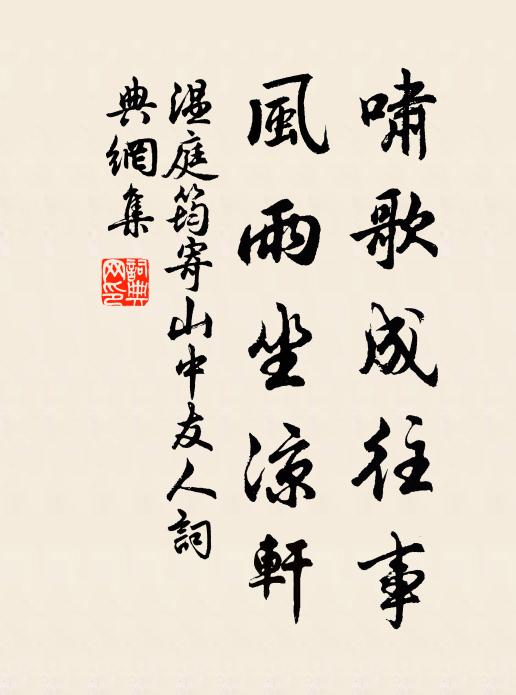 嘯歌成往事
風雨坐涼軒
温庭筠寄山中友人詞
典網集
詞典网印